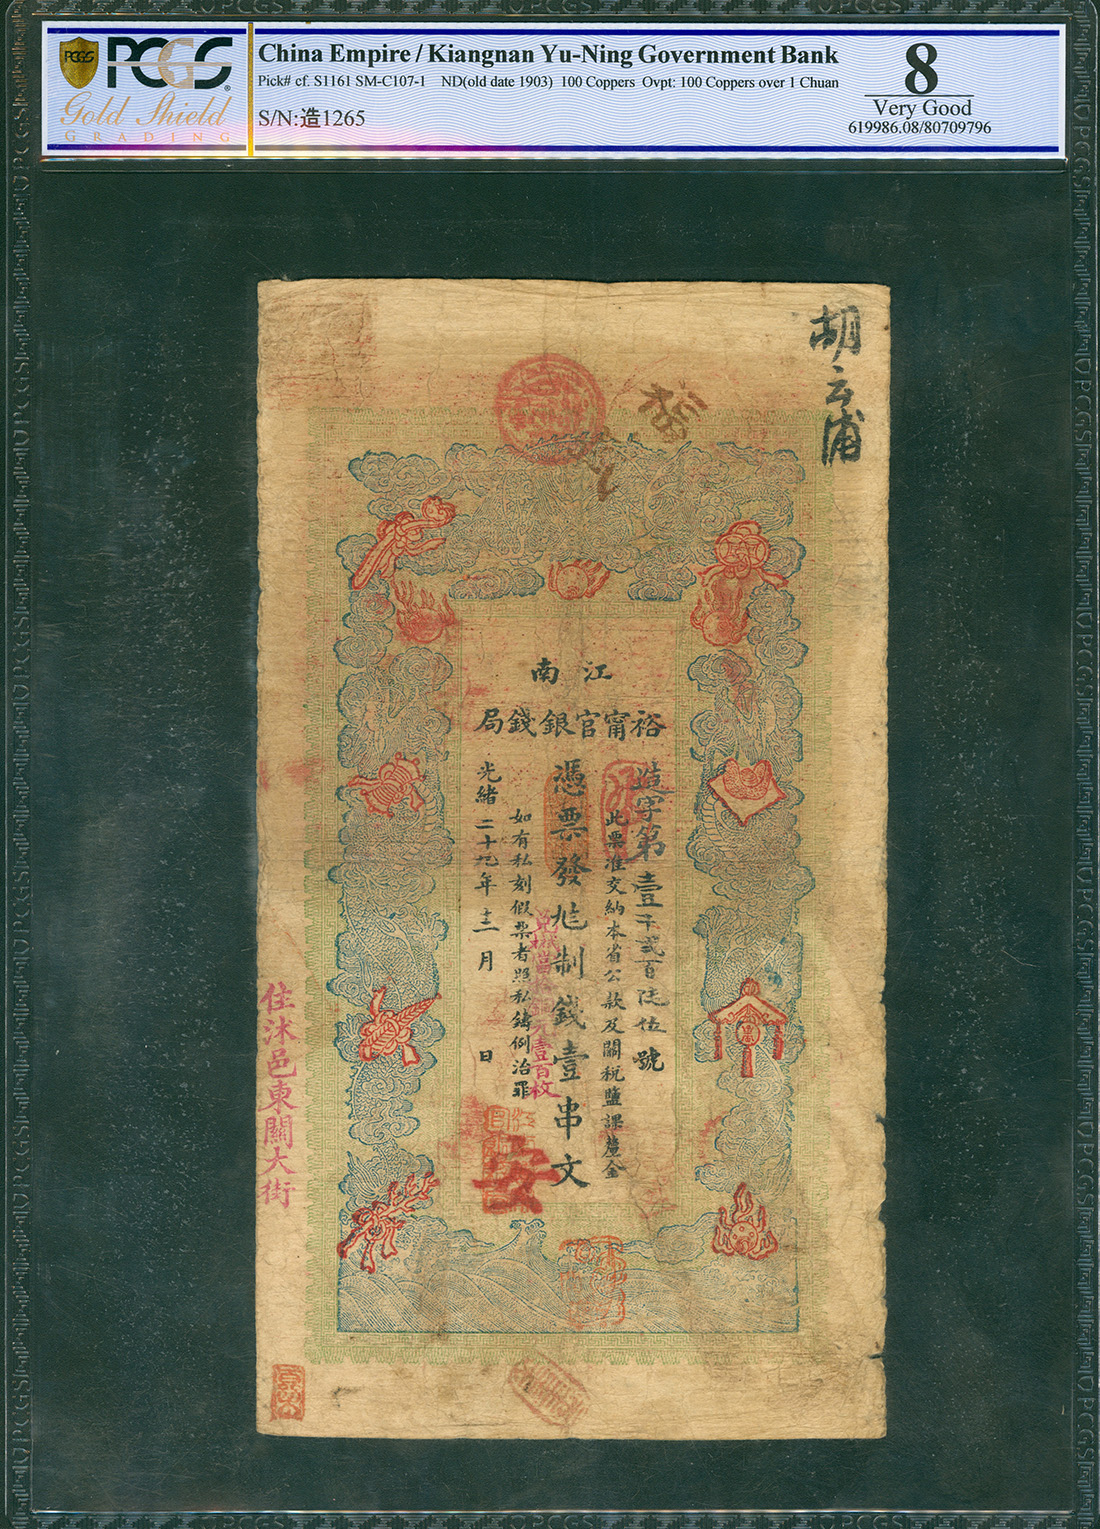 PCGS
Gold Shield
GRADING
China Empire / Kiangnan Yu-Ning Government Bank
Pick# cf. S1161 SM-C107-1 ND(old date 1903) 100 Coppers Ovpt: 100 Coppers over 1 Chuan
S/N:造1265
8
Very Good
619986.08/80709796
胡云浦
江南
裕甯官銀錢局
造字第壹千貳百陸拾伍號
此票准交納本省公款及關稅鹽課釐金
憑票發足制錢壹串文
兌換當拾銅元壹百枚
如有私刻假票者照私鑄例治罪
光緒二十九年十二月 日
安
住沭邑東關大街